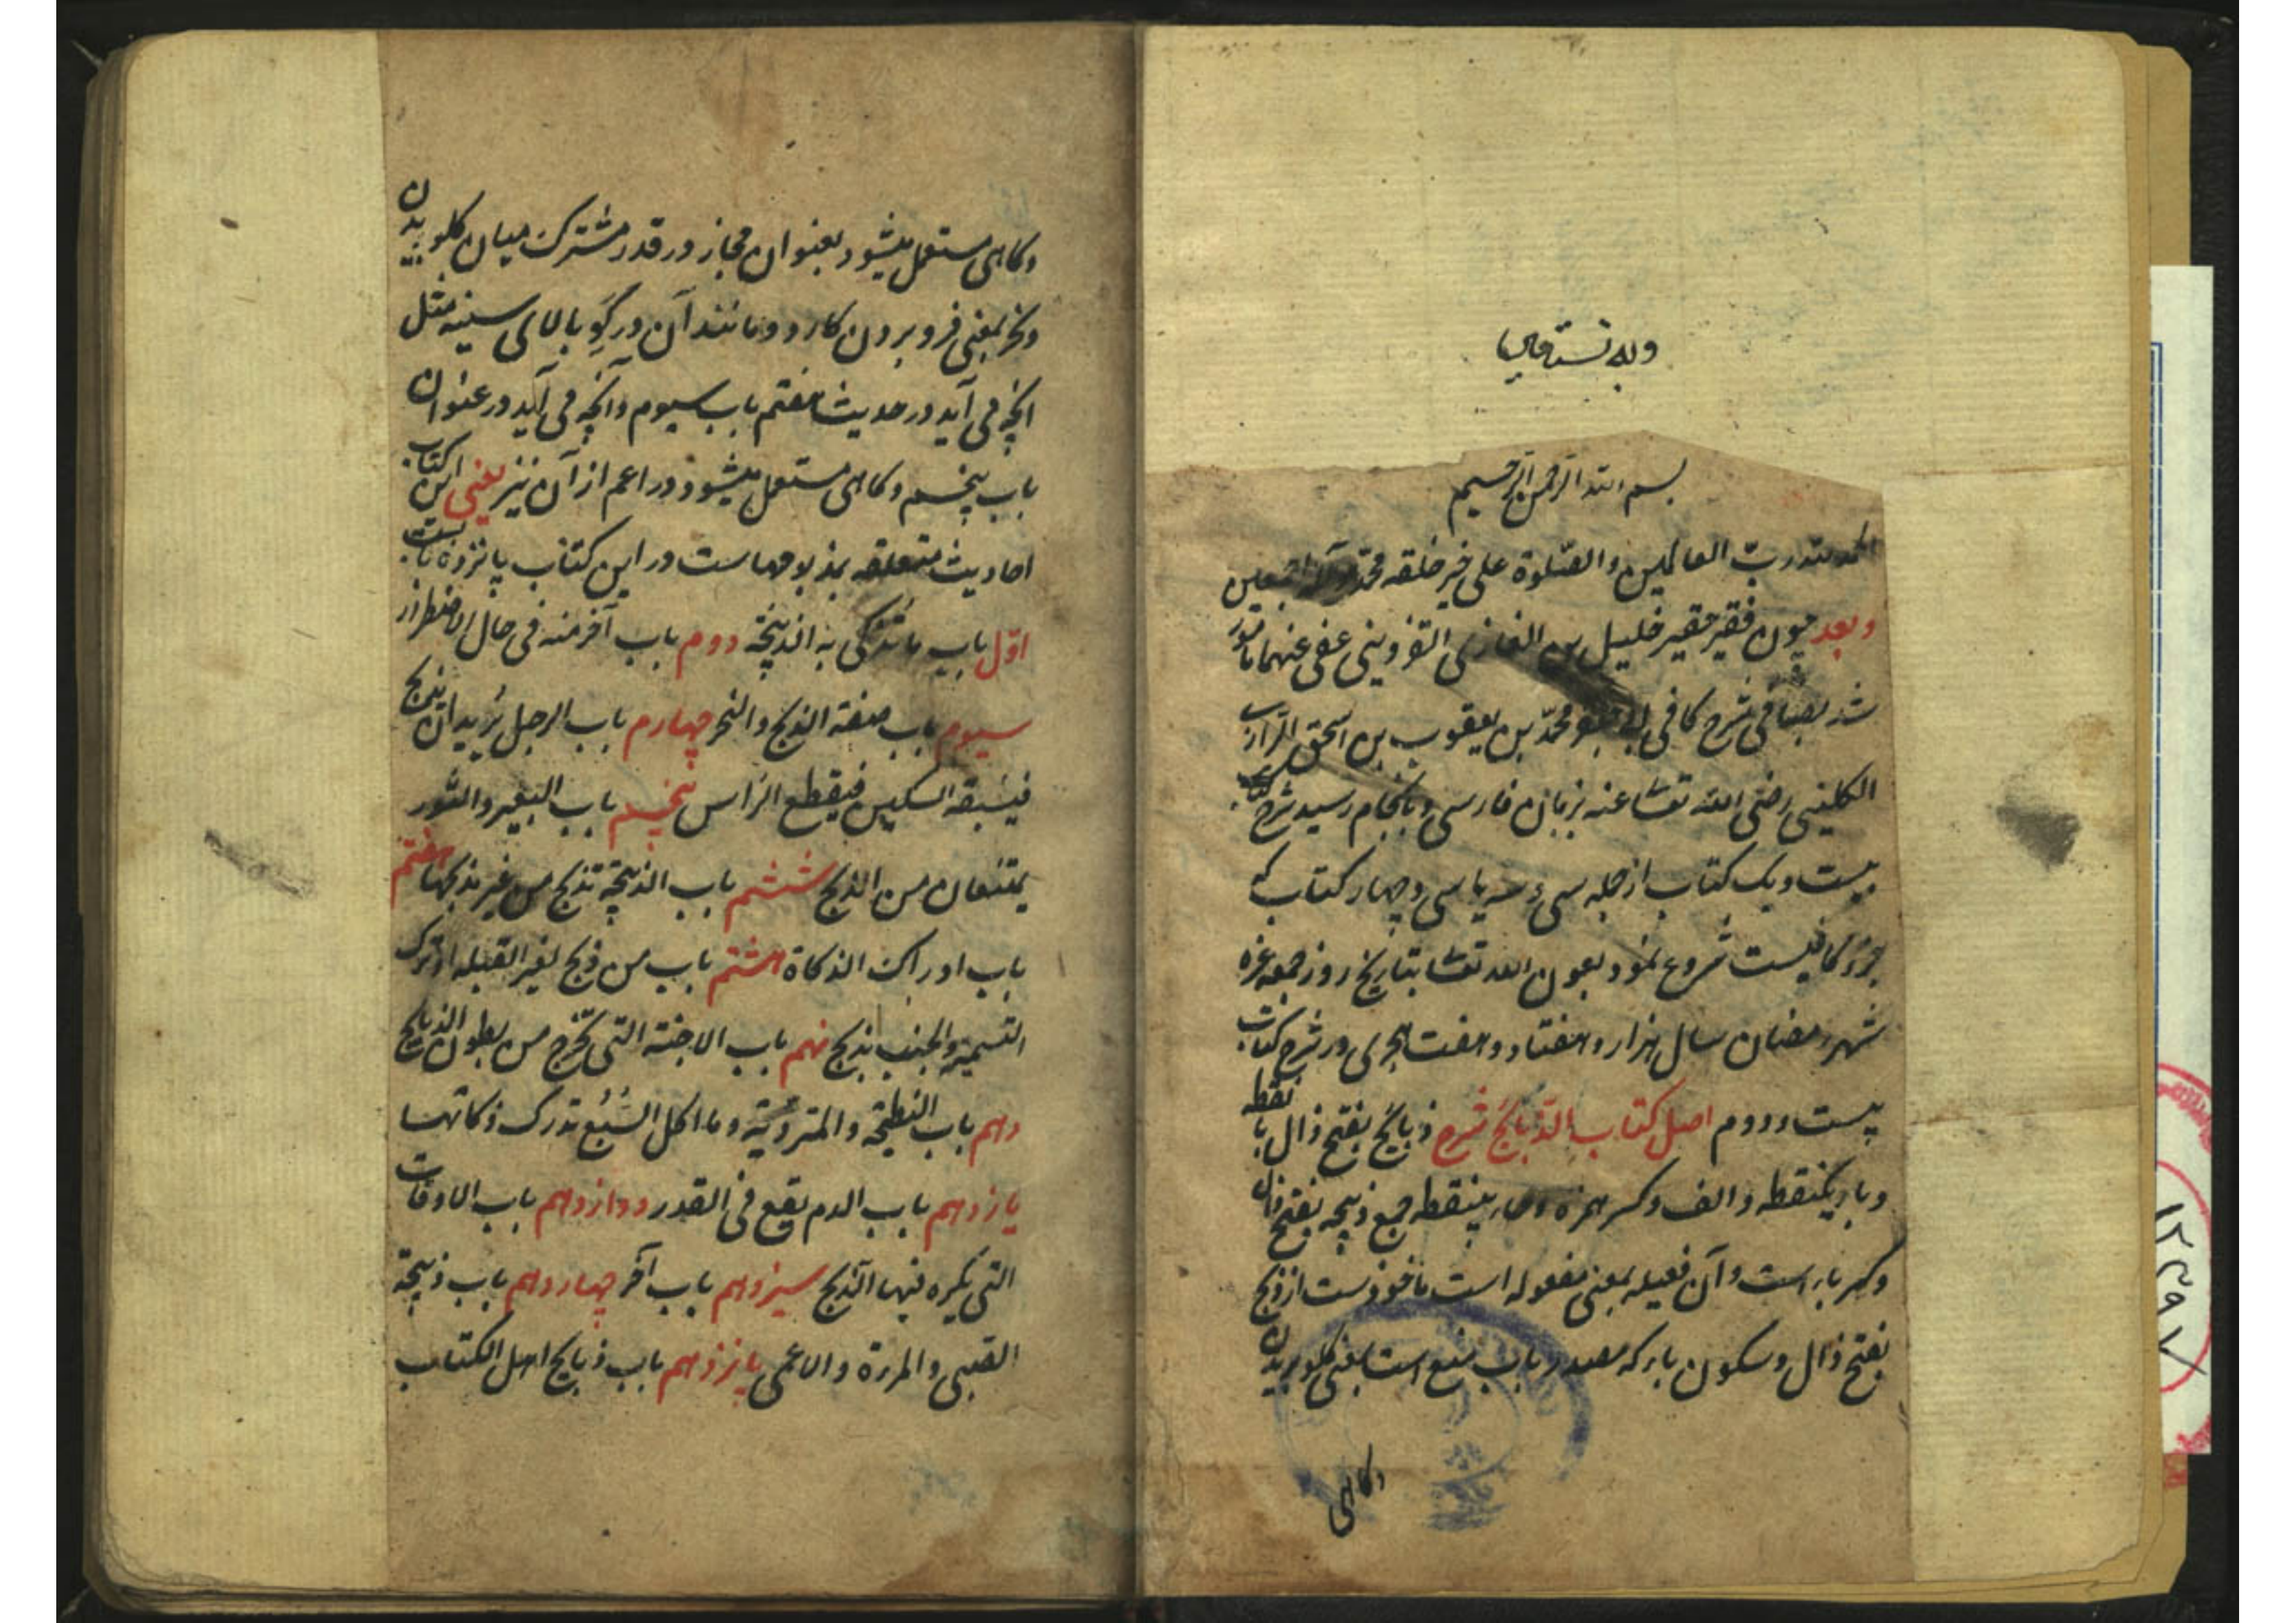 وبه نستعین
بسم الله الرحمن الرحیم
الحمد لله رب العالمین والصّلوة علی خیر خلقه محمّد وآله اجمعین
وبعد چون فقیر حقیر خلیل بن الغازی القزوینی عفی عنهما مامور
شد بصافی شرح کافی ابی جعفر محمّد بن یعقوب بن اسحق الرازی
الکلینی رضی الله تعا عنه بزبان فارسی وبانجام رسید شرح
بیست ویک کتاب از جمله سی وسه یا سی وچهار کتاب که
جزؤ کافیست شروع نمود بعون الله تعا بتاریخ روز جمعه غره
شهر رمضان سال هزار وهفتاد وهفت هجری در شرح کتاب
بیست ودوم اصل کتاب الذّبائح شرح ذبائح بفتح ذال با نقطه
وباء یکنقطه والف وکسر همزه وحاء بینقطه جمع ذبیحه بفتح ذال
وکسر باء است وآن فعیله بمعنی مفعوله است ماخوذست از ذبح
بفتح ذال وسکون باء که مصدر باب منع است بمعنی گلو بریدن
وکاهی
وکاهی مستعمل میشود بعنوان مجاز در قدر مشترک میان گلو بریدن
ونحر بمعنی فرو بردن کارد ومانند آن در گو بالای سینه مثل
آنچه می آید در حدیث هفتم باب سیوم وآنچه می آید در عنوان
باب پنجم وکاهی مستعمل میشود در اعم از آن نیز یعنی این کتاب
احادیث متعلقه بمذبوحهاست در این کتاب پانزده بابست
اوّل باب ما تذکی به الذبیحة دوم باب آخر منه فی حال الاضطرار
سیوم باب صفة الذبح والنحر چهارم باب الرجل یرید ان یذبح
فیسبقه السکین فیقطع الراس پنجم باب البعیر والثور
یمتنعان من الذبح ششم باب الذبیحة تذبح من غیر مذبحها هفتم
باب ادراک الذکاة هشتم باب من ذبح لغیر القبله او ترک
التسمیة والجنب یذبح نهم باب الاجنة التی تخرج من بطون الذبایح
دهم باب النطیحة والمتردیة وما اکل السّبُع تدرک ذکاتها
یازدهم باب الدم یقع فی القدر دوازدهم باب الاوقات
التی یکره فیها الذبح سیزدهم باب آخر چهاردهم باب ذبیحة
الصبی والمرءة والاعمی پانزدهم باب ذبایح اهل الکتاب
۱۲۳۹۷